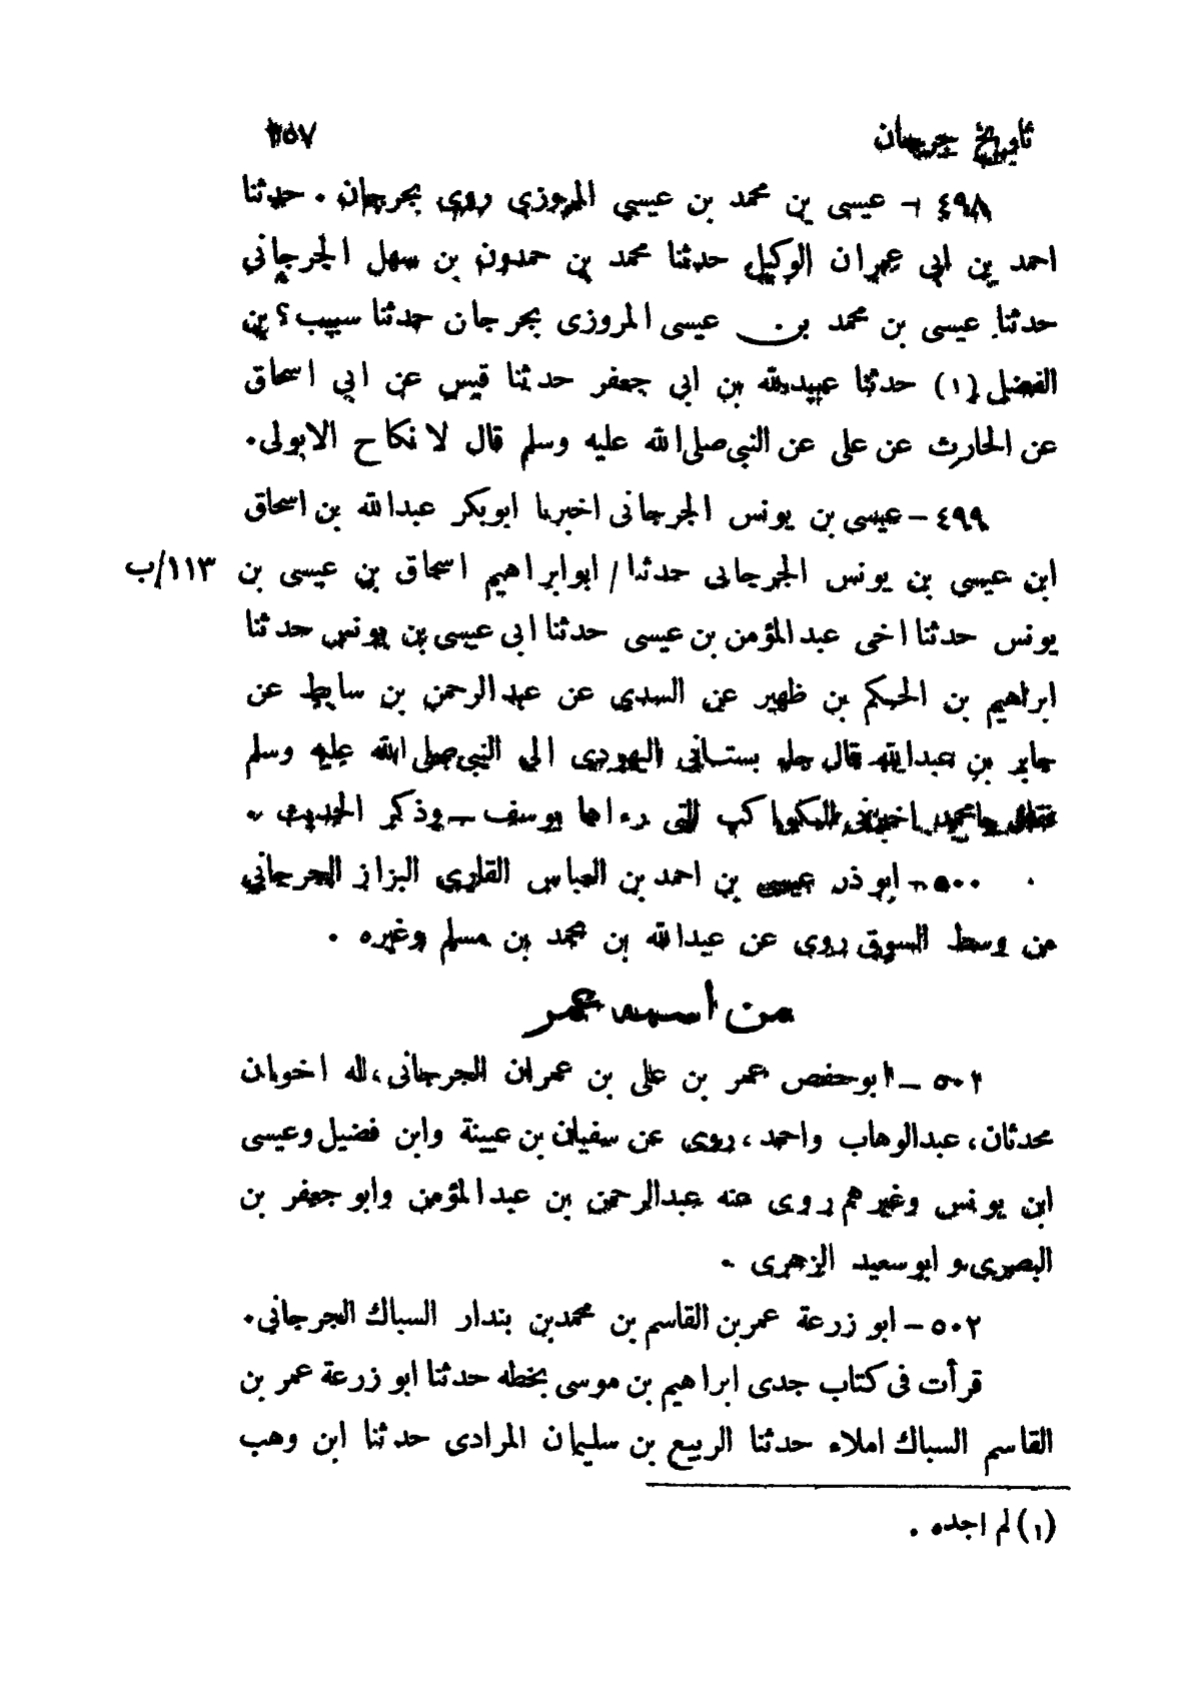 تاريخ جرجان ٢٥٧
٤٩٨ - عيسى بن محمد بن عيسى المروزي روى بجرجان . حدثنا
احمد بن ابى عمران الوكيل حدثنا محمد بن حمدون بن سهل الجرجانى
حدثنا عيسى بن محمد بن عيسى المروزى بجرجان حدثنا سبيب؟ بن
الفضيل (١) حدثنا عبيدالله بن ابى جعفر حدثنا قيس عن ابى اسحاق
عن الحارث عن على عن النبى صلى الله عليه وسلم قال لا نكاح الابولى.
٤٩٩ - عيسى بن يونس الجرجانى اخبرنا ابوبكر عبدالله بن اسحاق
ابن عيسى بن يونس الجرجانى حدثنا / ابو ابراهيم اسحاق بن عيسى بن ١١٣/ب
يونس حدثنا اخى عبد المؤمن بن عيسى حدثنا ابى عيسى بن يونس حدثنا
ابراهيم بن الحكم بن ظهير عن السدى عن عبد الرحمن بن سابط عن
جابر بن عبدالله قال جاء بستانى اليهودى الى النبى صلى الله عليه وسلم
فقال يا محمد اخبرنى بالكواكب التى رءاها يوسف - وذكر الحديث .
٥٠٠ - ابو ذر عيسى بن احمد بن العباس القارى البزاز الجرجانى
من وسط السوق روى عن عبدالله بن محمد بن مسلم وغيره .
من اسمه عمر
٥٠١ - ابو حفص عمر بن على بن عمران الجرجانى، له اخوان
محدثان، عبدالوهاب واحمد، روى عن سفيان بن عيينة وابن فضيل وعيسى
ابن يونس وغيرهم روى عنه عبدالرحمن بن عبد المؤمن وابو جعفر بن
البصرى و ابو سعيد الزهرى .
٥٠٢ - ابو زرعة عمر بن القاسم بن محمد بن بندار السباك الجرجانى.
قرأت فى كتاب جدى ابراهيم بن موسى بخطه حدثنا ابو زرعة عمر بن
القاسم السباك املاء حدثنا الربيع بن سليمان المرادى حدثنا ابن وهب
(١) لم اجده .